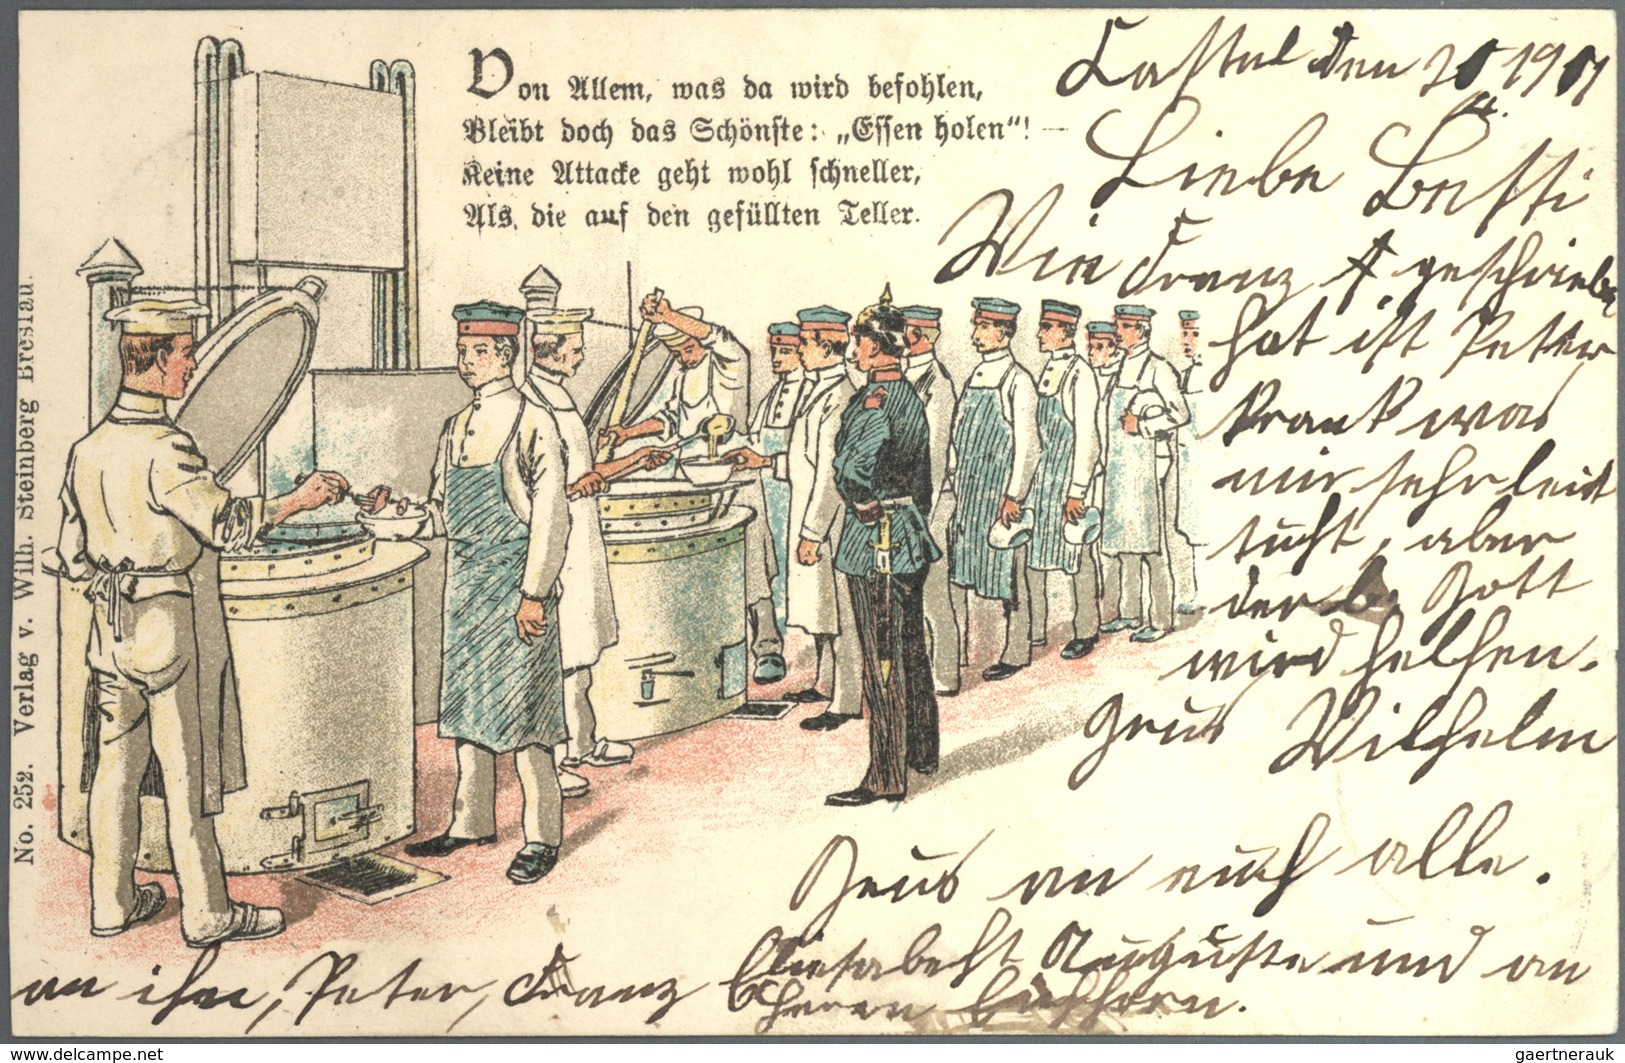 Von Allem, was da wird befohlen,
Bleibt doch das Schönste: „Essen holen“! —
Keine Attacke geht wohl schneller,
Als die auf den gefüllten Teller.
No. 252. Verlag v. Wilh. Steinberg Breslau.
Castel den 1901
Liebe
Wie Franz geschrieben
hat ist Peter
krank was
mir sehr leid
tuht, aber
der l. Gott
wird helfen.
Grus Wilhelm
Grus an euch alle.
an ihn, Peter, Franz Eliesabeht Auguste und an
Herrn
www.delcampe.net
gaertnerauk